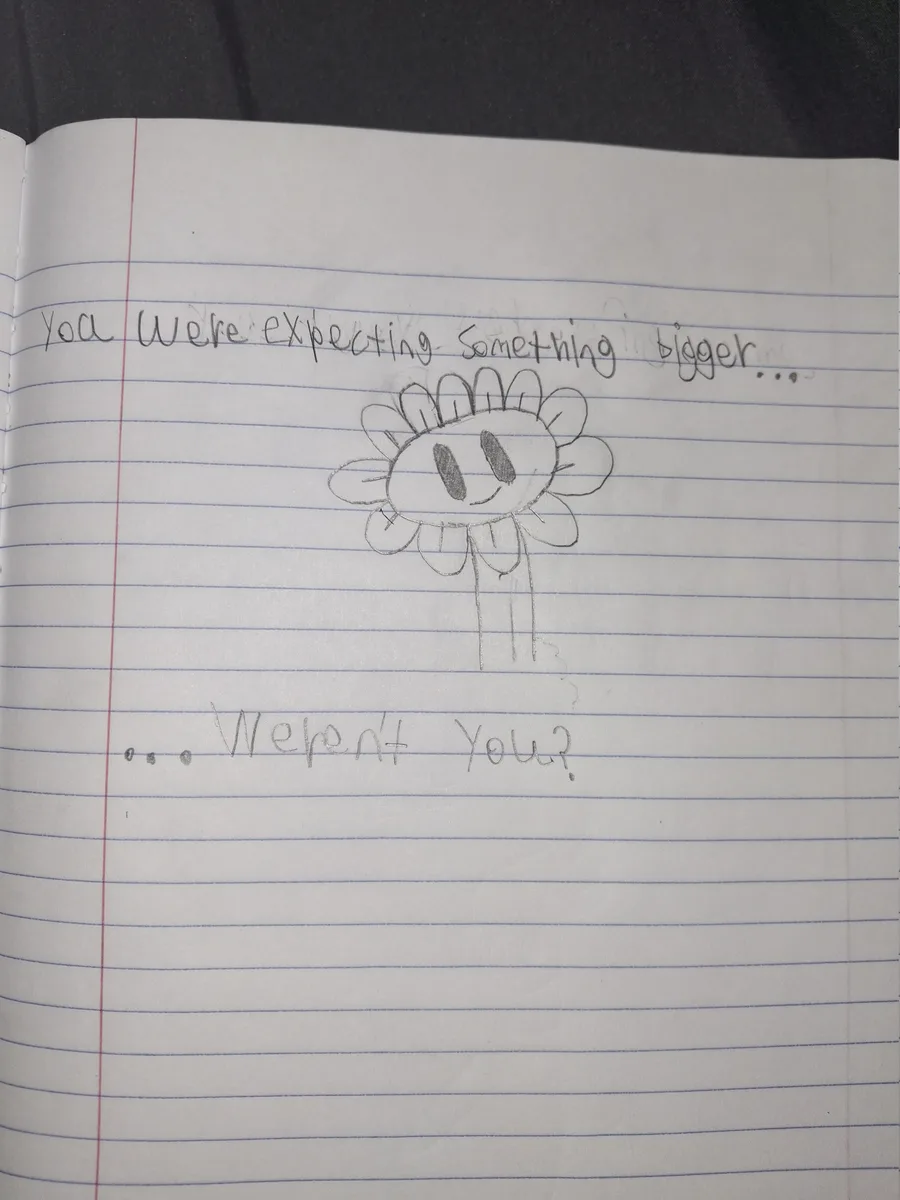 You were expecting something bigger...
...Weren't you?